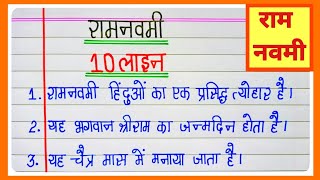 रामनवमी
10 लाइन
राम
नवमी
1. रामनवमी हिंदुओं का एक प्रसिद्ध त्योहार है।
2. यह भगवान श्रीराम का जन्मदिन होता है।
3. यह चैत्र मास में मनाया जाता है।